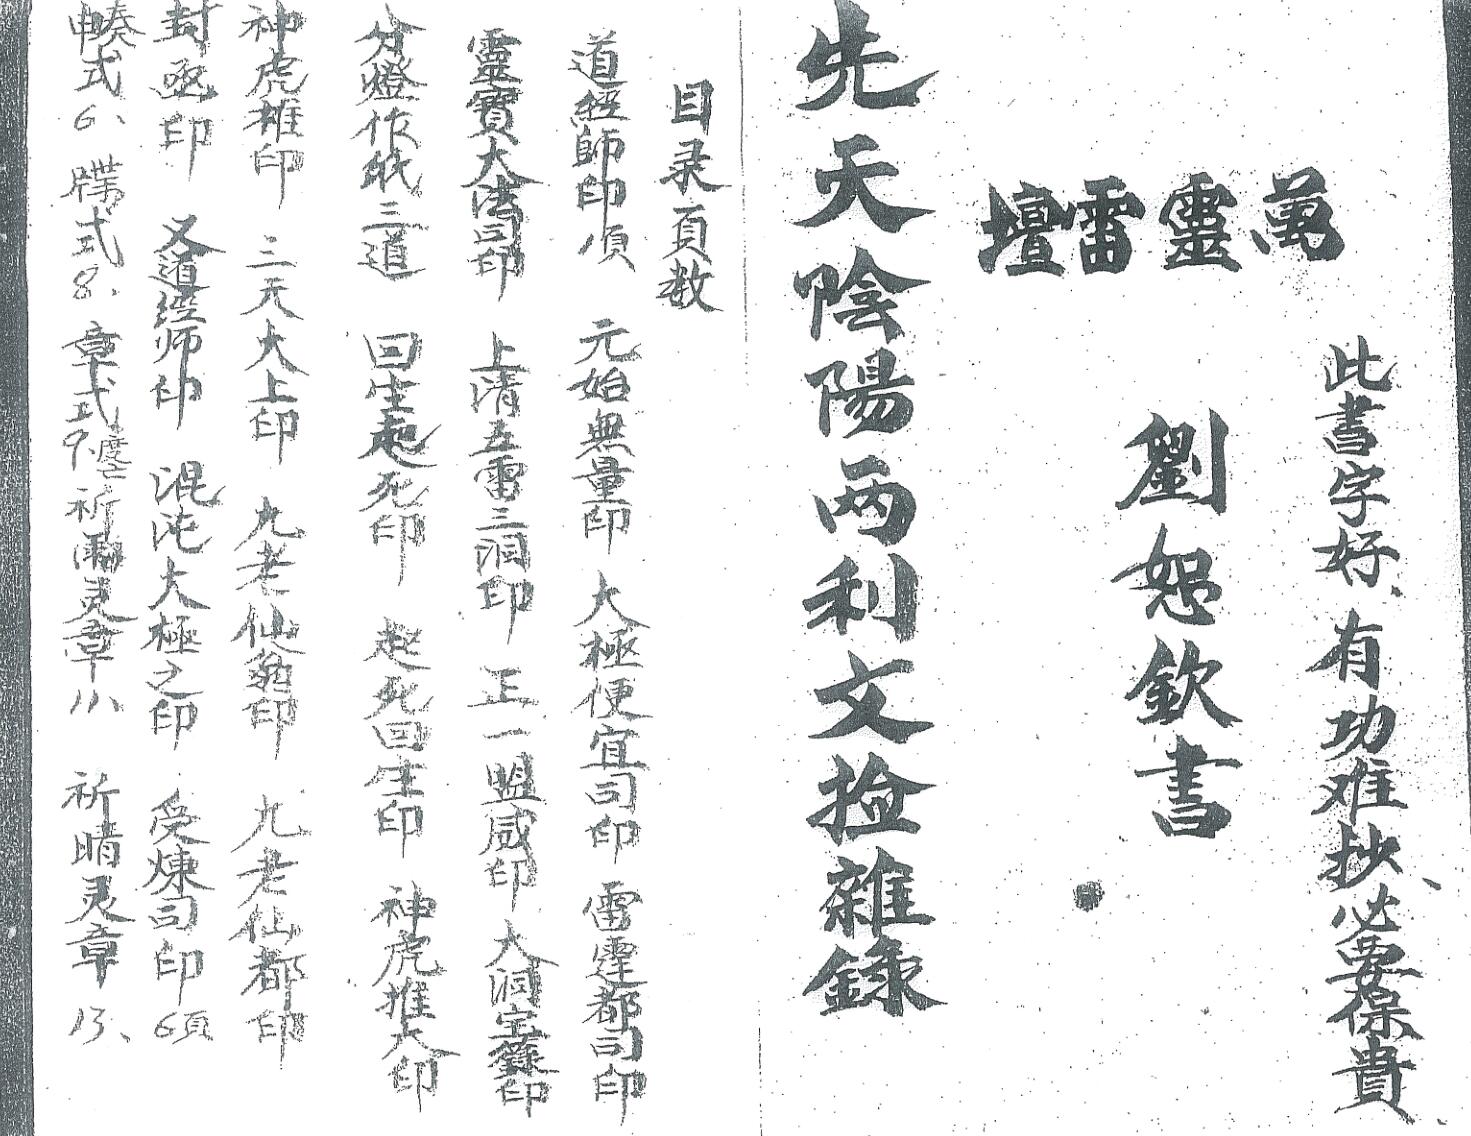 此書字好、有功难抄、必要保貴
萬靈雷壇
劉恕欽書
先天陰陽兩利文捡雜錄
目录頁数
道經師印 元始無量印 大極便宜司印 雷霆都司印
靈寶大法司印 上清五雷三洞印 正一盟威印 大洞宝籙印
分燈作紙三道 回生起死印 起死回生印 神虎推大印
神虎推印 三天大上印 九老仙翁印 九老仙都印
封函印 又道經师印 混沌大極之印 受煉司印 6頁
式6、 牒式8、 章式9、度亡 祈雨灵章11、 祈晴灵章13、